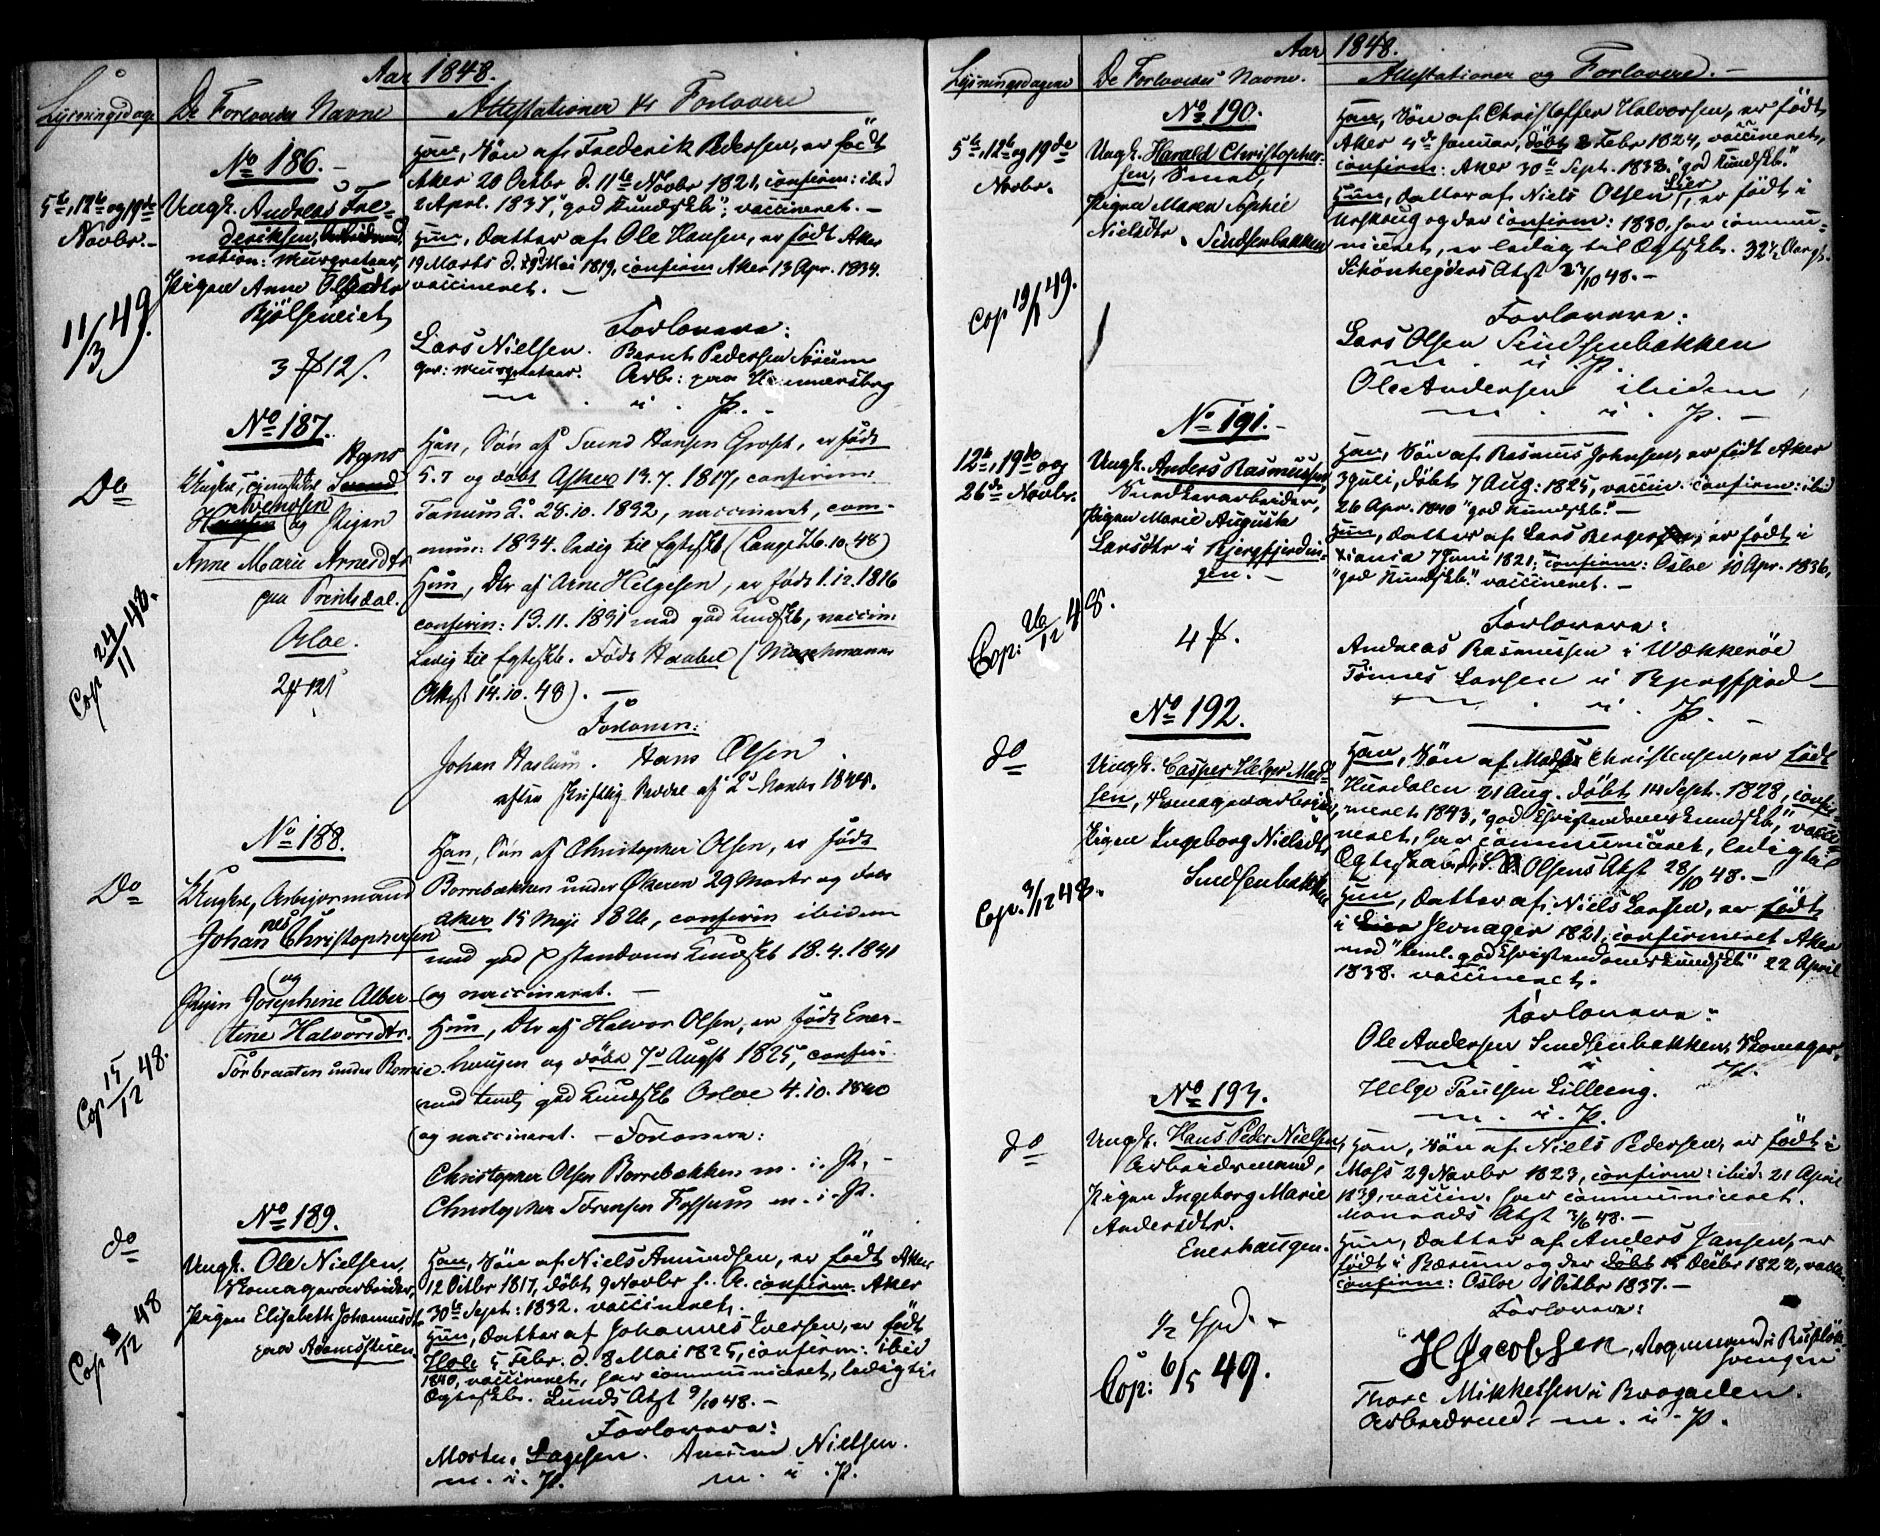 Aar 1848.
Lysningsdage
De Forlovedes Navne
Attestationer & Forlovere
No 186.
5te, 12te og 19de
Novbr.
Ungk. Andreas Fre-
deriksen,
Pigen Anne Olsdtr
Bjölseneiet
11/3 49.
3 # 12 s.
Han, Sön af Frederik Pedersen, er født
Aker 20 Octbr d. 11te Novbr 1821, confirm: ibid
2 April. 1837, "god Kundskb"; vaccineret. —
Hun, Datter af Ole Hansen, er født Aker
19 Marts d. 19 Mai 1819, confirm Aker 13 Apr. 1834.
vaccineret. —
Forlovere:
Lars Nielsen. Bernt Pedersen Sörum
Arb: paa Hammersborg
m. i. P.
No 187.
Do
Hans
Svend
Svendsen
og Pigen
Anne Marie Arnesdtr
paa Prindsdal.
Osloe.
Cop 24/11 48.
2 # 12 s
Han, Sön af Svend Hansen Groset, er født
5.7 og döbt Asker 13.7. 1817, confirm:
Tanum K. 28.10. 1832, vaccineret, com-
mun: 1834. ledig til Egteskb (Lange 26.10.48)
Hun, Dtr af Arne Helgesen, er född 1.12.1816
confirm: 13.11. 1831 med god Kundskb, vaccin:
Ledig til Egteskb. Född Haabøl (Maschmanns
Attst 14.10.48). —
Forlovere:
Johan Haslum. Hans Olsen
efter skriftlig Vedde af 2 Novbr 1848.
No 188.
Do
Ungkl, Arbeidsmand
Johannes Christophersen
og
Pigen Josephine Alber-
tine Halvorsdtr.
Torbraaten under Borrie
Cop 15/12 48.
Han, Sön af Christopher Olsen, er född
Borrebækken under Økeren 29 Marts og döbt
Aker 15 Maji 1826, confirm ibidem
med god Xstendoms Kundskb 18.4.1841
og vaccineret. —
Hun, Dtr af Halvor Olsen, er född Ener-
haugen og döbt 7d Augst 1825, confir:
med temlig god Kundskb Osloe 4.10.1840
og vaccineret. — Forlovere:
Christopher Olsen Borrebækken m. i. P. —
Christopher Sörensen Fossum m. i. P.
No 189.
do
Ungk. Ole Nielsen,
Komagerarbeider,
Pigen Elisabeth Johannesdtr
paa Adamsstuen.
Cop 8/12 48
Han, Sön af Niels Amundsen, er født Aker
12 Octbr 1817, döbt 9 Novbr s. A. confirm. Aker
30te Sept: 1832. vaccineret.
Hun, Datter af Johannes Iversen, er født
Hole 5 Febr. d. 8 Mai 1825, confirm: ibid
1840, vaccineret, har communiceret, ledig til
Egteskb. Lunds Atst 9/10 48. —
Forlovere:
Morten Lagesen. Amund Nielsen.
m. i. P. m. i. P.
Aar 1848.
Lysningsdagene
De Forlovedes Navne.
Attestationer og Forlovere. —
No 190.
5te, 12te og 19de
Novbr.
Ungk. Harald Christopher-
sen, Smed,
Pigen Maren Sophie
Nielsdtr. Sindsenbakken
Cop 19/1 49.
Han, Sön af Christoffer Halvorsen, er født
Aker 4de Januar, döbt 8 Febr 1824, vaccineret,
confirm: Aker 30te Sept. 1838, "god Kundskb."
Hun, Datter af Niels Olsen Lier, er født i
Urskoug og der confirm: 1830, har commu-
niceret, er ledig til Egteskb. 32½ Aargl.
Schönheyders Atst 27/10 48. —
Forlovere:
Lars Olsen Sindsenbakken
m. i. P.
Ole Andersen ibidem
m. i. P. —
No 191. —
12te, 19de og
26de Novbr.
Ungk. Anders Rasmussen,
Snedkerarbeider,
Pigen Marie Auguste
Larsdtr i Bjergfjerdin-
gen. —
Cop: 26/12 48.
4 #.
Han, Sön af Rasmus Johnsen, er født Aker
3 Juli, döbt 7 Aug: 1825, vaccin. confirm: ibid
26 Apr. 1840 "god Kundskb." —
Hun, Datter af Lars Bergersen, er født i
Xiania 7 Juni 1821, confirm: Osloe 10 Apr. 1836,
"god Kundskb." vaccineret. —
Forlovere:
Andreas Rasmussen i Wækkeröe
Tönnes Larsen i Bjergfjerd —
m. i. P. —
No 192.
do
Ungk. Casper Helge Mad-
sen, Komagerarbeider,
Pigen Ingeborg Nielsdtr
Sindsenbakken
Cop. 3/12 48.
Han, Sön af Mads Christensen, er født
Hurdalen 21 Aug. döbt 14 Sept. 1828, confir-
meret 1843, "god Christendomskundskb," vacci-
neret, har communiceret, ledig til
Egteskab. Olsens Atst 28/10 48. —
Hun, Datter af Niels Larsen, er født
i Jevnager 1821, confirmeret Aker
med "teml. god Christendomskundskb" 22 April
1838. vaccineret.
Forlovere:
Ole Andersen Sindsenbakken, Komager.
m. i. P.
Helge Paulsen Lilleeng.
m. i. P.
No 193.
do
Ungk. Hans Peder Nielsen,
Arbeidsmand,
Pigen Ingeborg Marie
Andersdtr.
Enerhaugen.
½ Spd. —
Cop: 6/5 49.
Han, Sön af Niels Pedersen, er født i
Moss 29 Novbr 1823, confirm: ibid: 21 April
1839, vaccin. har communiceret.
Monrads Atst 3/6 48. —
Hun, Datter af Anders Jansen, er
født i Bærum og der döbt 15 Decbr 1822, vacc.
confirm: Osloe 1 Octbr 1837. —
Forlovere:
H Jacobsen, Vognmand i Rufslök-
svingen
Thore Mikkelsen i Brogaden.
Arbeidsmd. m. i. P.